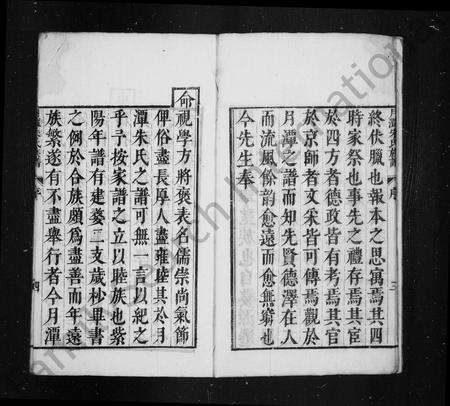 終伏臘也報本之思寓焉其四
時家祭也事先之禮存焉其宦
於四方者德政皆有考焉其官
於京師者文采皆可傳焉觀於
月潭之譜而知先賢德澤在人
而流風餘韵愈遠而愈無窮也
今先生奉
序
三
命視學方將褒表名儒崇尚氣節
俾俗盡長厚人盡雍睦其於月
潭朱氏之譜可無一言以紀之
乎予按家譜之立以睦族也紫
陽年譜有建婺三支歲杪畢書
之例於合族頗為盡善而年遠
族繁遂有不盡舉行者今月潭
序
四